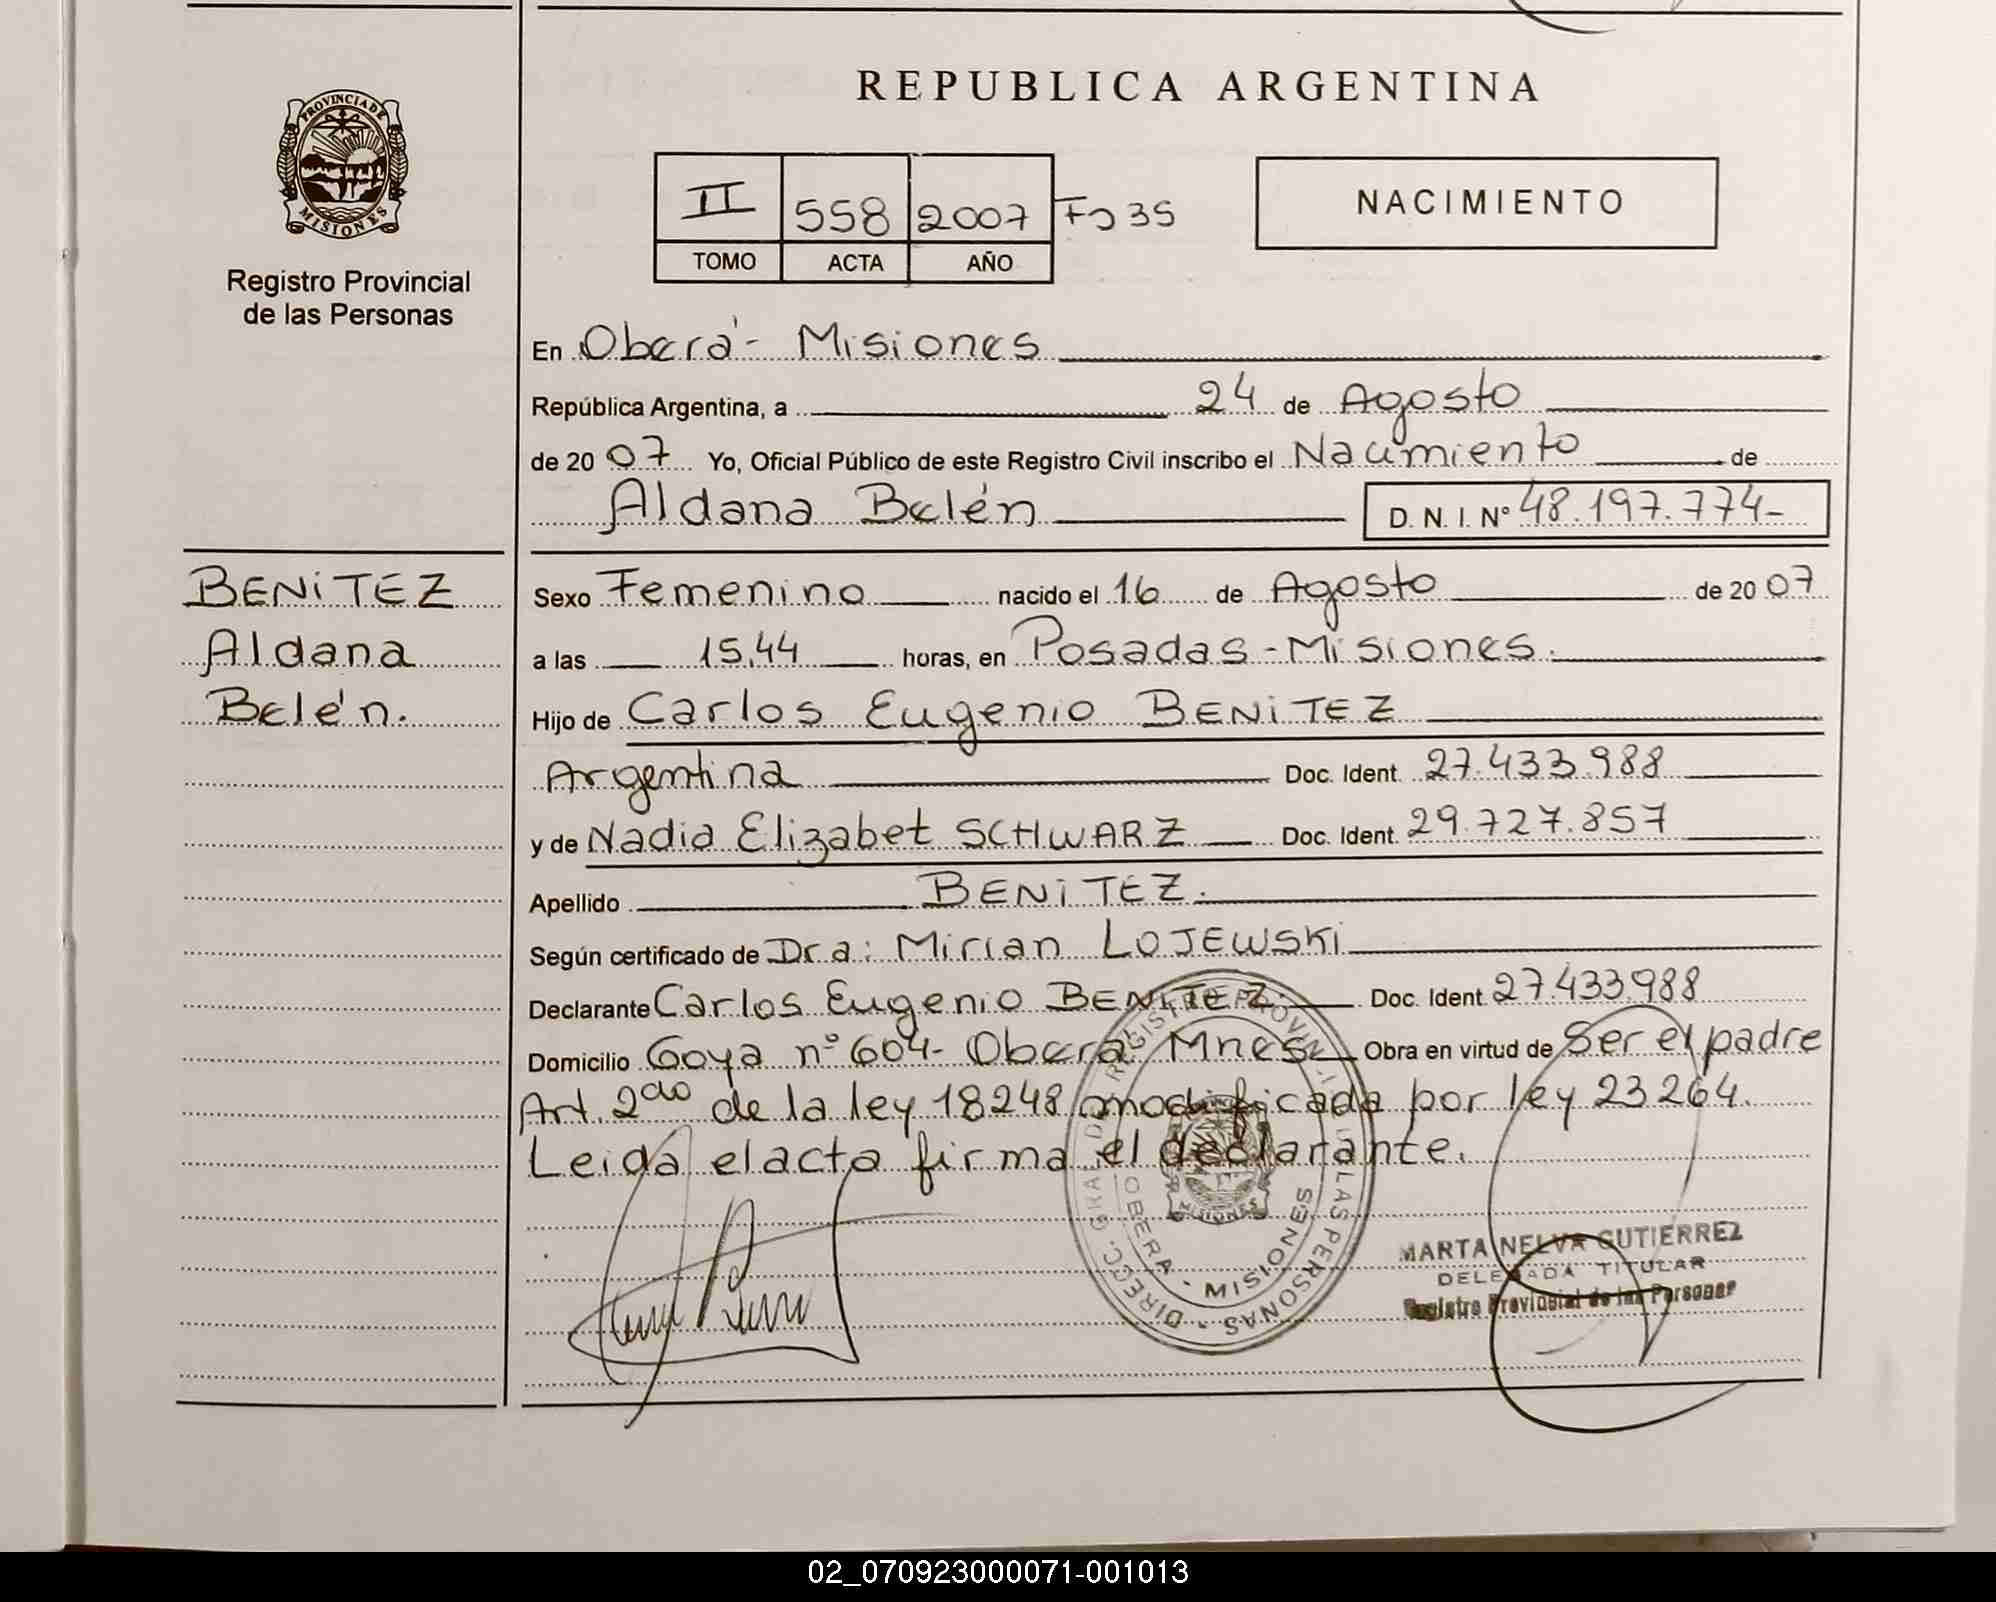 REPUBLICA ARGENTINA
PROVINCIA DE
MISIONES
Registro Provincial
de las Personas
II 558 2007 Fº 35
TOMO ACTA AÑO
NACIMIENTO
En Oberá - Misiones
República Argentina, a 24 de Agosto
de 2007 Yo, Oficial Público de este Registro Civil inscribo el Nacimiento de
Aldana Belén D. N. I. Nº 48.197.774-
BENITEZ
Aldana
Belén.
Sexo Femenino nacido el 16 de Agosto de 2007
a las 15,44 horas, en Posadas - Misiones.
Hijo de Carlos Eugenio BENITEZ
Argentina Doc. Ident. 27.433.988
y de Nadia Elizabet SCHWARZ Doc. Ident. 29.727.857
Apellido BENITEZ.
Según certificado de Dra: Mirian LOJEWSKI
Declarante Carlos Eugenio BENITEZ. Doc. Ident 27.433.988
Domicilio Goya nº 604- Oberá. Mnes. Obra en virtud de Ser el padre
Art. 2do de la ley 18248 modificada por ley 23264.
Leida el acta firma el declarante.
DIRECC. GRAL. DEL REGISTRO PROVINCIAL DE LAS PERSONAS
OBERA - MISIONES
MISIONES
MARTA NELVA GUTIERREZ
DELEGADA TITULAR
Registro Provincial de las Personas
02_070923000071-001013